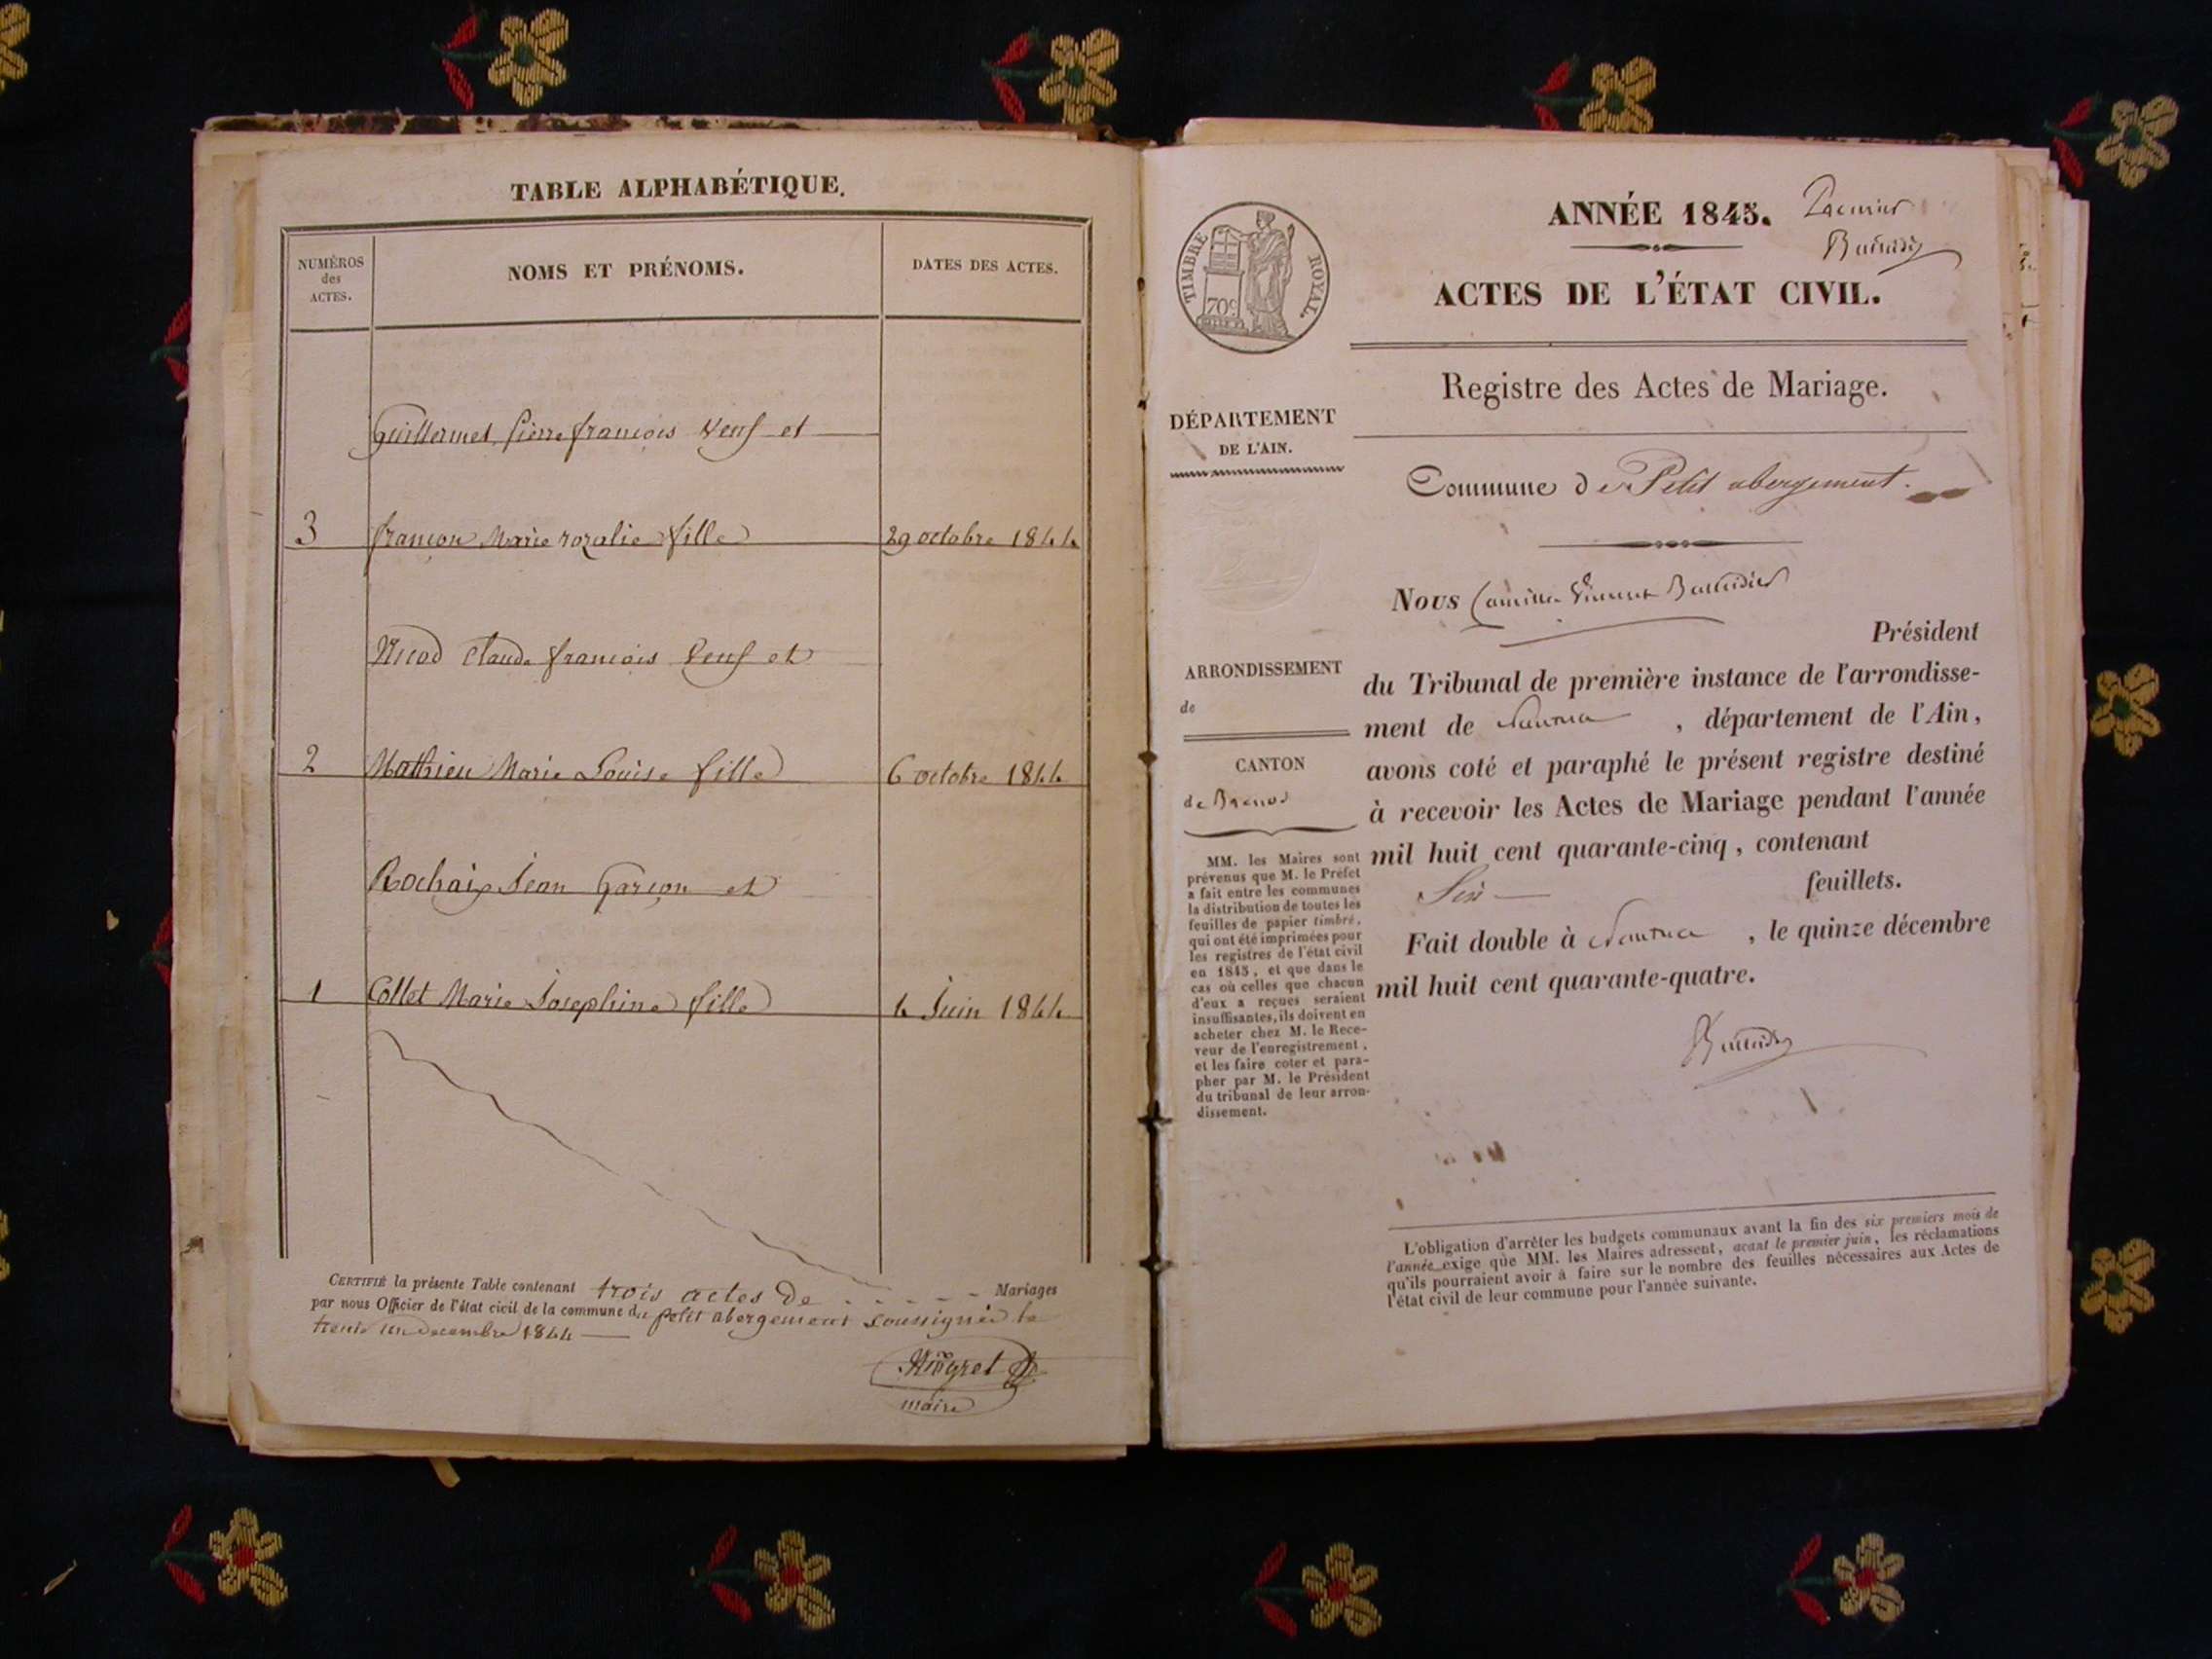 TABLE ALPHABÉTIQUE.
NUMÉROS
des
ACTES.
NOMS ET PRÉNOMS.
DATES DES ACTES.
Guillermet Pierre françois Veuf et
3 françon Marie rozalie fille 29 octobre 1844
Nicod Claude françois Veuf et
2 Mathieu Marie Louise fille 6 octobre 1844
Rochaix Jean Garçon et
1 Collet Marie Josephine fille 4 Juin 1844
CERTIFIÉ la présente Table contenant trois actes de - - - - - Mariages
par nous Officier de l'état civil de la commune du petit abergement soussigné le
trente un decembre 1844
maire
TIMBRE ROYAL.
70c.
ANNÉE 1845. Premier
ACTES DE L'ÉTAT CIVIL.
Registre des Actes de Mariage.
DÉPARTEMENT
DE L'AIN.
Commune de Petit abergement.
Nous Camille Vincent
Président
du Tribunal de première instance de l'arrondisse-
ment de Nantua , département de l'Ain,
avons coté et paraphé le présent registre destiné
à recevoir les Actes de Mariage pendant l'année
mil huit cent quarante-cinq, contenant
Six feuillets.
Fait double à Nantua , le quinze décembre
mil huit cent quarante-quatre.
ARRONDISSEMENT
de
CANTON
de Brenod
MM. les Maires sont
prévenus que M. le Préfet
a fait entre les communes
la distribution de toutes les
feuilles de papier timbré,
qui ont été imprimées pour
les registres de l'état civil
en 1845, et que dans le
cas où celles que chacun
d'eux a reçues seraient
insuffisantes, ils doivent en
acheter chez M. le Rece-
veur de l'enregistrement,
et les faire coter et para-
pher par M. le Président
du tribunal de leur arron-
dissement.
L'obligation d'arrêter les budgets communaux avant la fin des six premiers mois de
l'année exige que MM. les Maires adressent, avant le premier juin, les réclamations
qu'ils pourraient avoir à faire sur le nombre des feuilles nécessaires aux Actes de
l'état civil de leur commune pour l'année suivante.